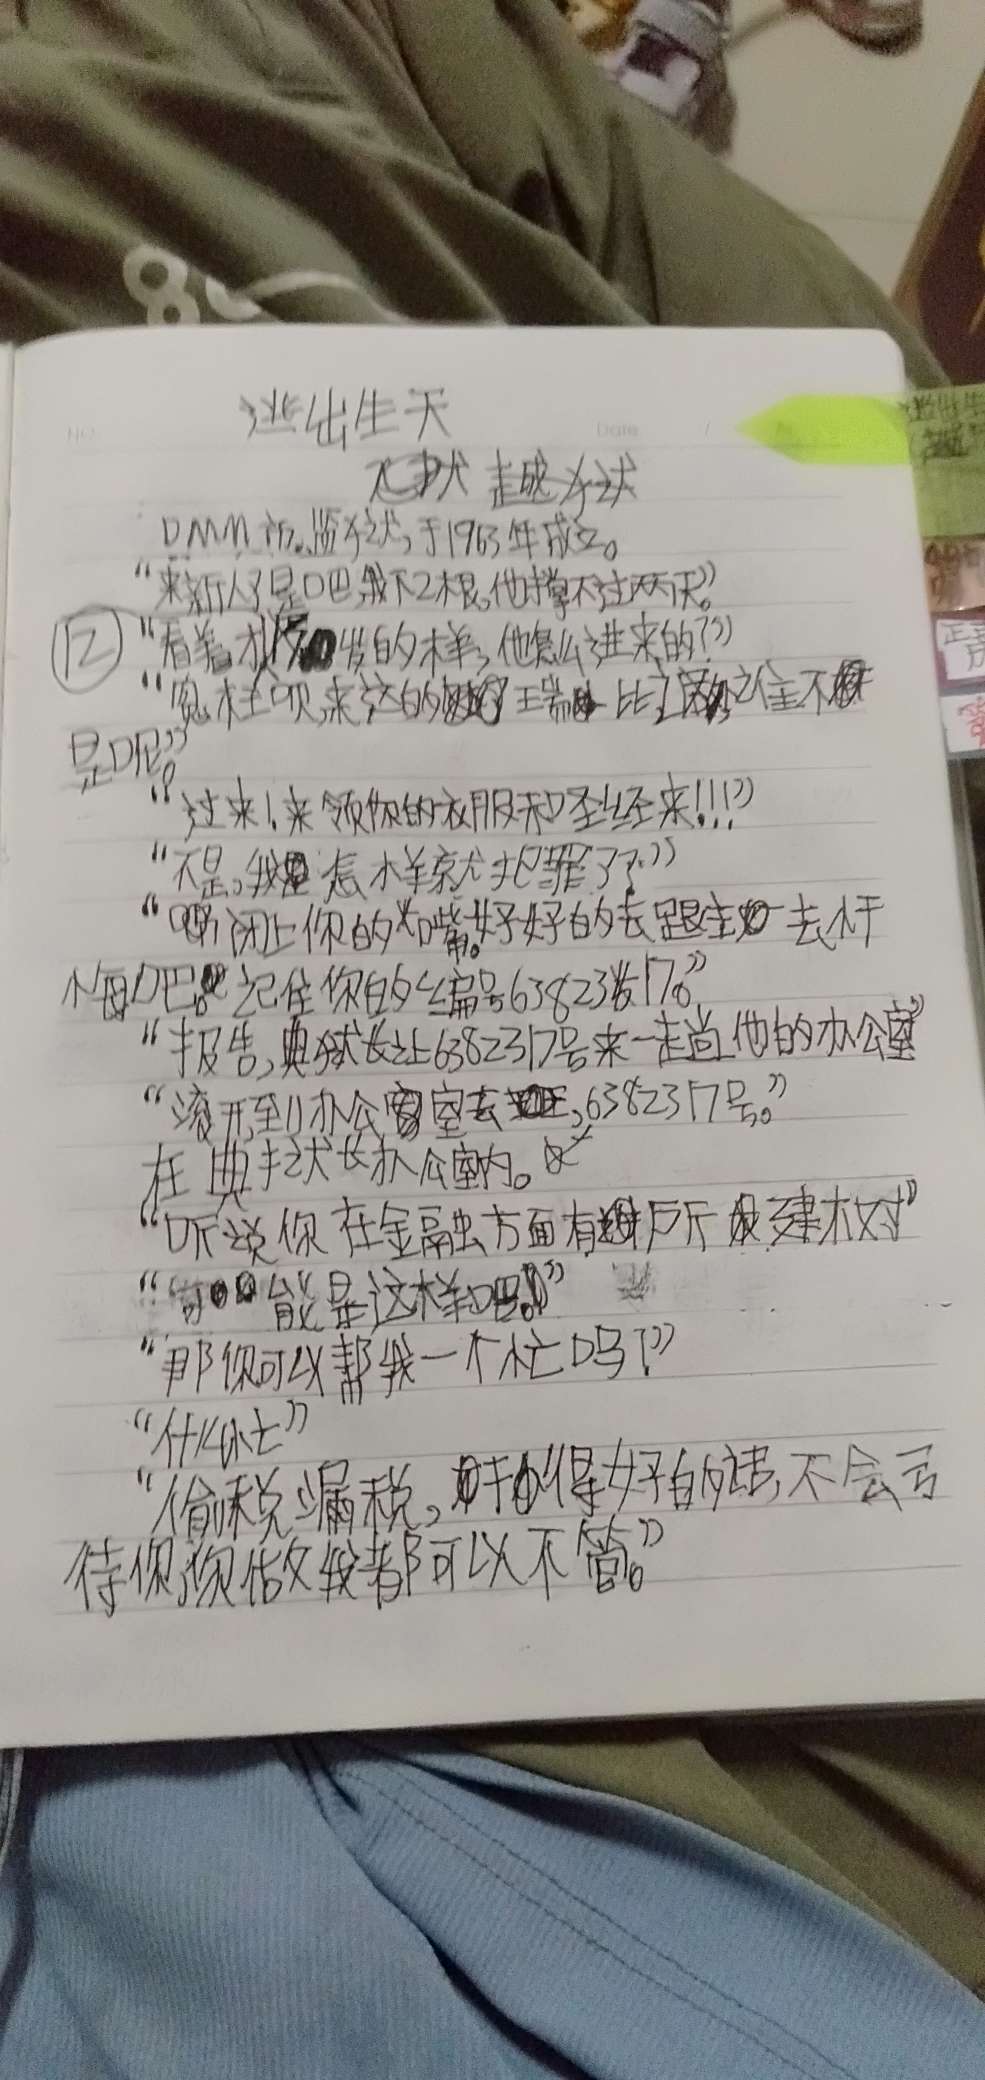 逃出生天
越狱
DMM市监狱,于1963年成立。
“来新人了是吧,我下2根,他撑不过两天。”
12
“看着才 岁的样,他怎么进来的?”
“冤枉呗,来这的 比了 之住不
是呢。”
“过来!来领你的衣服和圣经来!!!”
“不是,我 怎样就犯罪了?”
“ 闭上你的 嘴。好好的去跟 去忏
悔吧。记住你的编号63823 17。”
“报告,典狱长让6382317号来一趟他的办公室”
“滚开,到办公室去 ,6382317号。”
在典狱长办公室内。
“听说你在金融方面有所 建树”
“可 能是这样吧。”
“那你可以帮我一个忙吗?”
“什么忙”
“偷税漏税, 得好的话,不会亏
待你, 做我都可以不管。”
NO.
Date /
逃出生